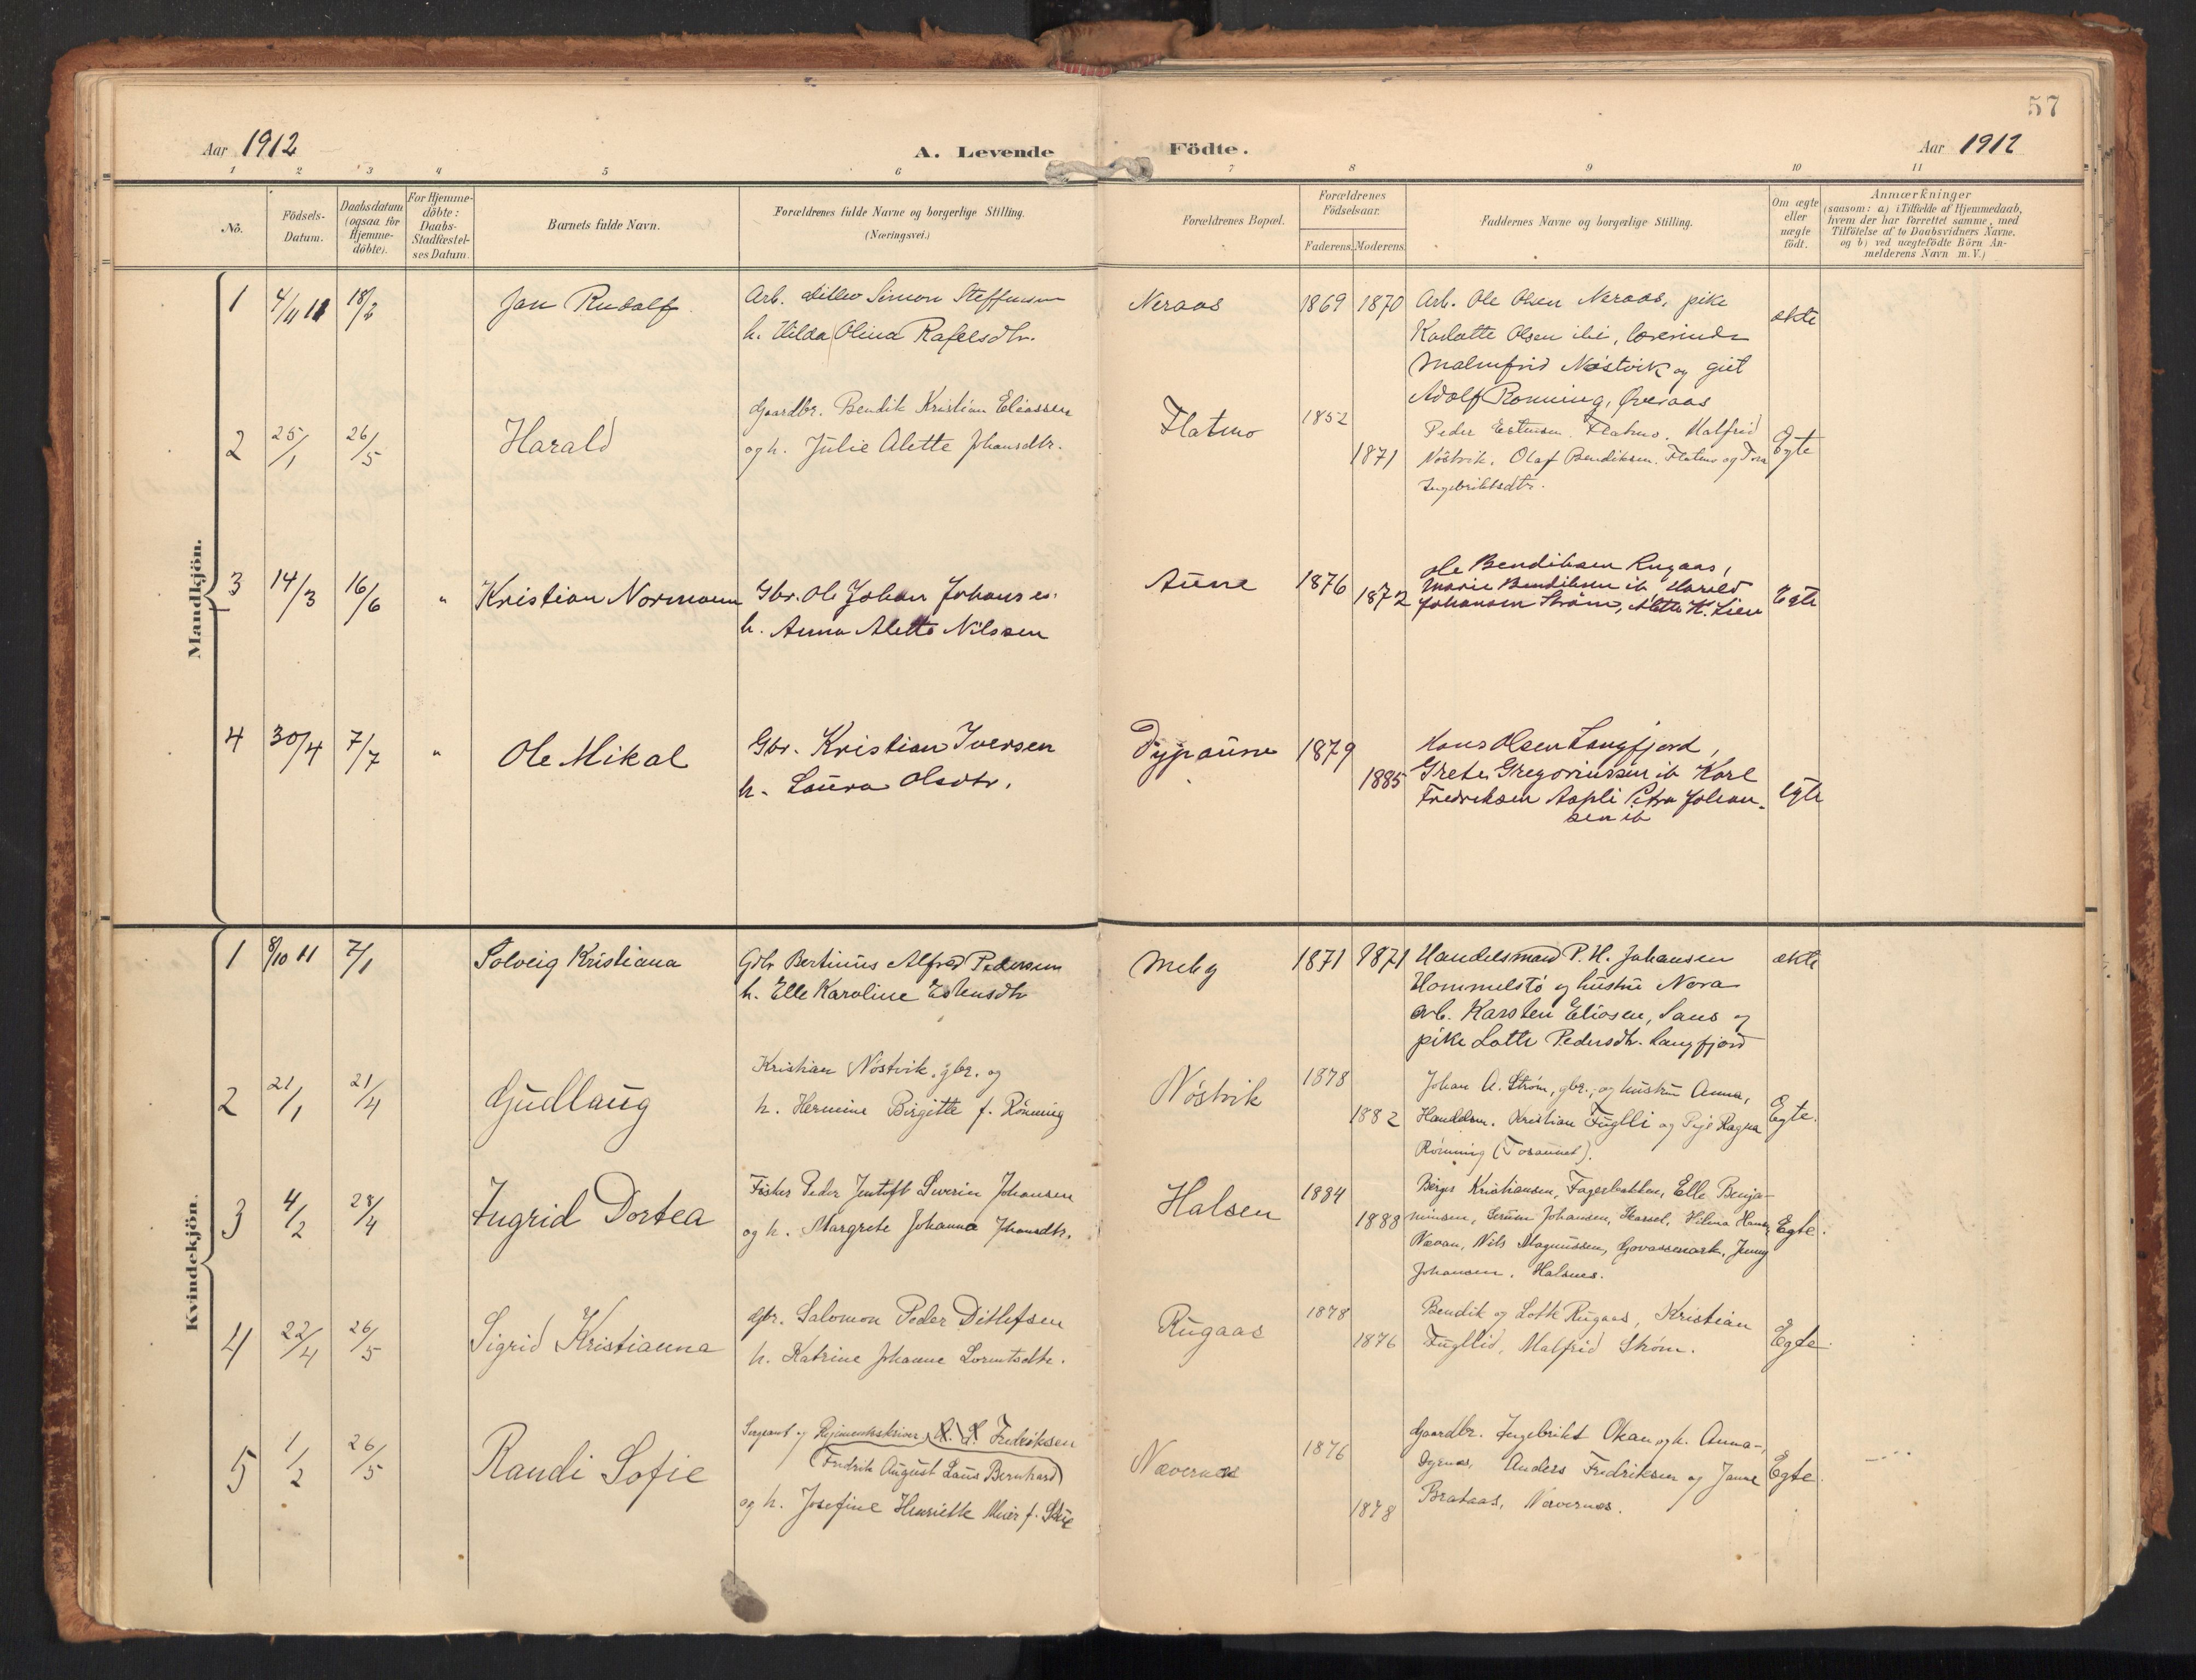 57
Aar 1912
A. Levende
Födte.
Aar 1912
1 2 3 4 5 6 7 8 9 10 11
No.
Födsels-
Datum.
Daabsdatum
(ogsaa for
Hjemme-
döbte).
For Hjemme-
döbte:
Daabs-
Stadfæstel-
ses Datum.
Barnets fulde Navn.
Forældrenes fulde Navne og borgerlige Stilling.
(Næringsvei.)
Forældrenes Bopæl.
Forældrenes
Födselsaar.
Faderens. Moderens.
Faddernes Navne og borgerlige Stilling.
Om ægte
eller
uægte
födt.
Anmærkninger
(saasom: a) i Tilfælde af Hjemmedaab,
hvem der har forrettet samme, med
Tilföielse af to Daabsvidners Navne,
og b) ved uægtefödte Börn An-
melderens Navn m. V.)
Mandkjön.
1 4/11 11 18/2 Jan Rudolf.
Arb. Ditlev Simon Steffensen
h. Hilda Olina Rafelsdtr.
Neraas 1869 1870
Arb. Ole Olsen Neraas, pike
Karlotte Olsen ibi, lærerinde
Malmfrid Nøstvik og gut
Adolf Rønning, Øveraas
ekte
2 25/1 26/5 Harald
Gaardbr. Bendik Kristian Eliassen
og h. Julie Alette Johansdtr.
Flatmo 1852 1871
Peder Estensen Flatmo, Malfrid
Nöstvik, Olaf Bendiksen, Flatmo og Tora
Ingebriktsdtr.
Egte
3 14/3 16/6 " Kristian Normann
Gbr. Ole Johan Johans es.
h. Anna Alette Nilssen
Aune 1876 1872
Ole Bendiksen Rugaas,
Marie Bendiksen ib Harald
Johansen Strøm, Alette K. Lien
Egte
4 30/4 7/7 " Ole Mikal
Gbr. Kristian Iversen
h. Laura Olsdtr.
Dypaune 1879 1885
Hans Olsen Langfjord,
Grete Gregoriussen ib Karl
Fredriksen Aspli Petra Johan-
sen ib
egte
Kvindekjön.
1 8/10 11 7/1 Solveig Kristiana
Gdbr Bertinius Alfred Pedersen
h. Elle Karoline Estensdtr
Meby 1871 1871
Handelsmand P. H. Johansen
Hommelstø og hustru Nora
arb. Karsten Eliasen, Saus og
pike Lotte Pedersdtr. Langfjord
ekte
2 21/1 21/4 Gudlaug
Kristian Nöstvik, gbr. og
h. Hermine Birgitte f. Rönning
Nöstvik 1878 1882
Johan A. Ström, gbr., og hustru Anna,
Handelsm. Kristian Fuglli og Pige Ragna
Rönning (Tosaunet).
Egte.
3 4/2 28/4 Ingrid Dortea
Fisker Peder Jentoft Severin Johansen
og h. Margrete Johanna Johansdtr.
Halsen 1884 1888
Birger Kristiansen, Fagerbakken, Elle Benja-
minsen, Johansen, Hilma
Nils Magnussen, Jenny
Johansen, Halsnes.
Egte.
4 22/4 26/5 Sigrid Kristianna
Gbr. Salomon Peder Ditlefsen
h. Katrine Johanne Lorentsdtr.
Rugaas 1878 1876
Bendik og Lotte Rugaas, Kristian
Fugllid, Malfrid Ström.
Egte
5 1/2 26/5 Randi Sofie
Sergeant og Regimentsskriver Fredriksen
(Fredrik August Laus Bernhard)
og h. Josefine Henriette Meier f.
Nævernes 1876 1878
Gaardbr. Ingebrikt og h. Anna
Anders Fredriksen og Janne
Brataas, Nævernes.
Egte.